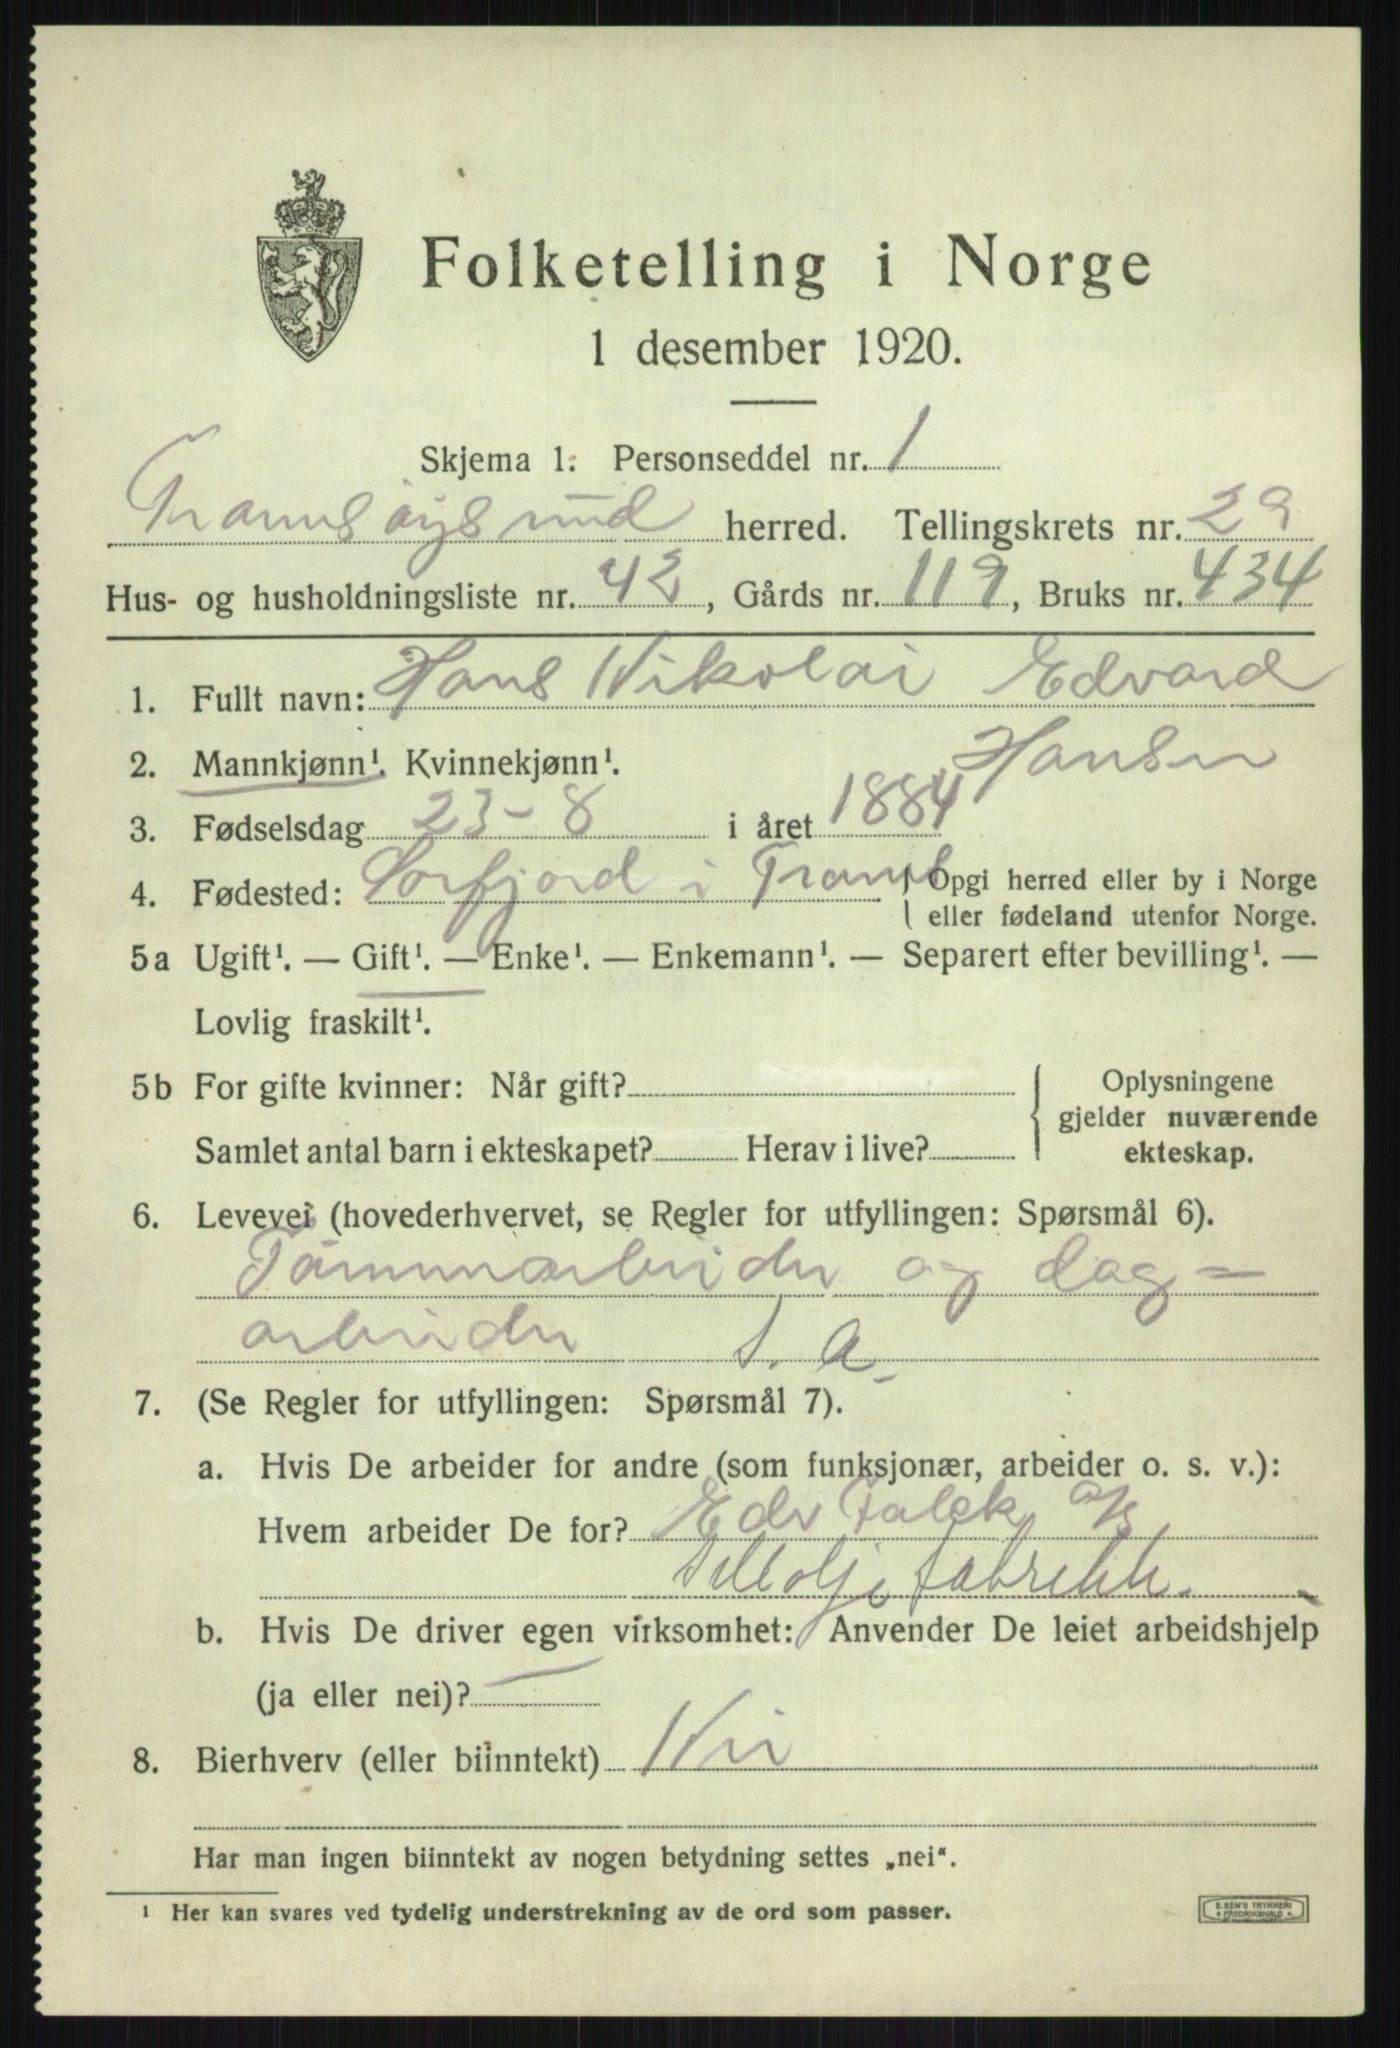 Folketelling i Norge
1 desember 1920.
Skjema 1: Personseddel nr. 1
Tromsøysund herred. Tellingskrets nr. 29
Hus- og husholdningsliste nr. 42, Gårds nr. 119, Bruks nr. 434
1. Fullt navn: Hans Nikolai Edvard
Hansen
2. Mannkjønn¹. Kvinnekjønn¹.
3. Fødselsdag 23-8 i året 1884
4. Fødested: Sørfjord i Troms
Opgi herred eller by i Norge
eller fødeland utenfor Norge.
5a Ugift¹. — Gift¹. — Enke¹. — Enkemann¹. — Separert efter bevilling¹. —
Lovlig fraskilt¹.
5b For gifte kvinner: Når gift?
Samlet antal barn i ekteskapet? Herav i live?
Oplysningene
gjelder nuværende
ekteskap.
6. Levevei (hovederhvervet, se Regler for utfyllingen: Spørsmål 6).
og dag-
arbeider S. A.
7. (Se Regler for utfyllingen: Spørsmål 7).
a. Hvis De arbeider for andre (som funksjonær, arbeider o. s. v.):
Hvem arbeider De for? Edv Falck A/S
Sildoljefabrikk.
b. Hvis De driver egen virksomhet: Anvender De leiet arbeidshjelp
(ja eller nei)? —
8. Bierhverv (eller biinntekt) Nei
Har man ingen biinntekt av nogen betydning settes „nei“.
¹ Her kan svares ved tydelig understrekning av de ord som passer.
E. SEM'S TRYKKERI
FREDRIKSHALD